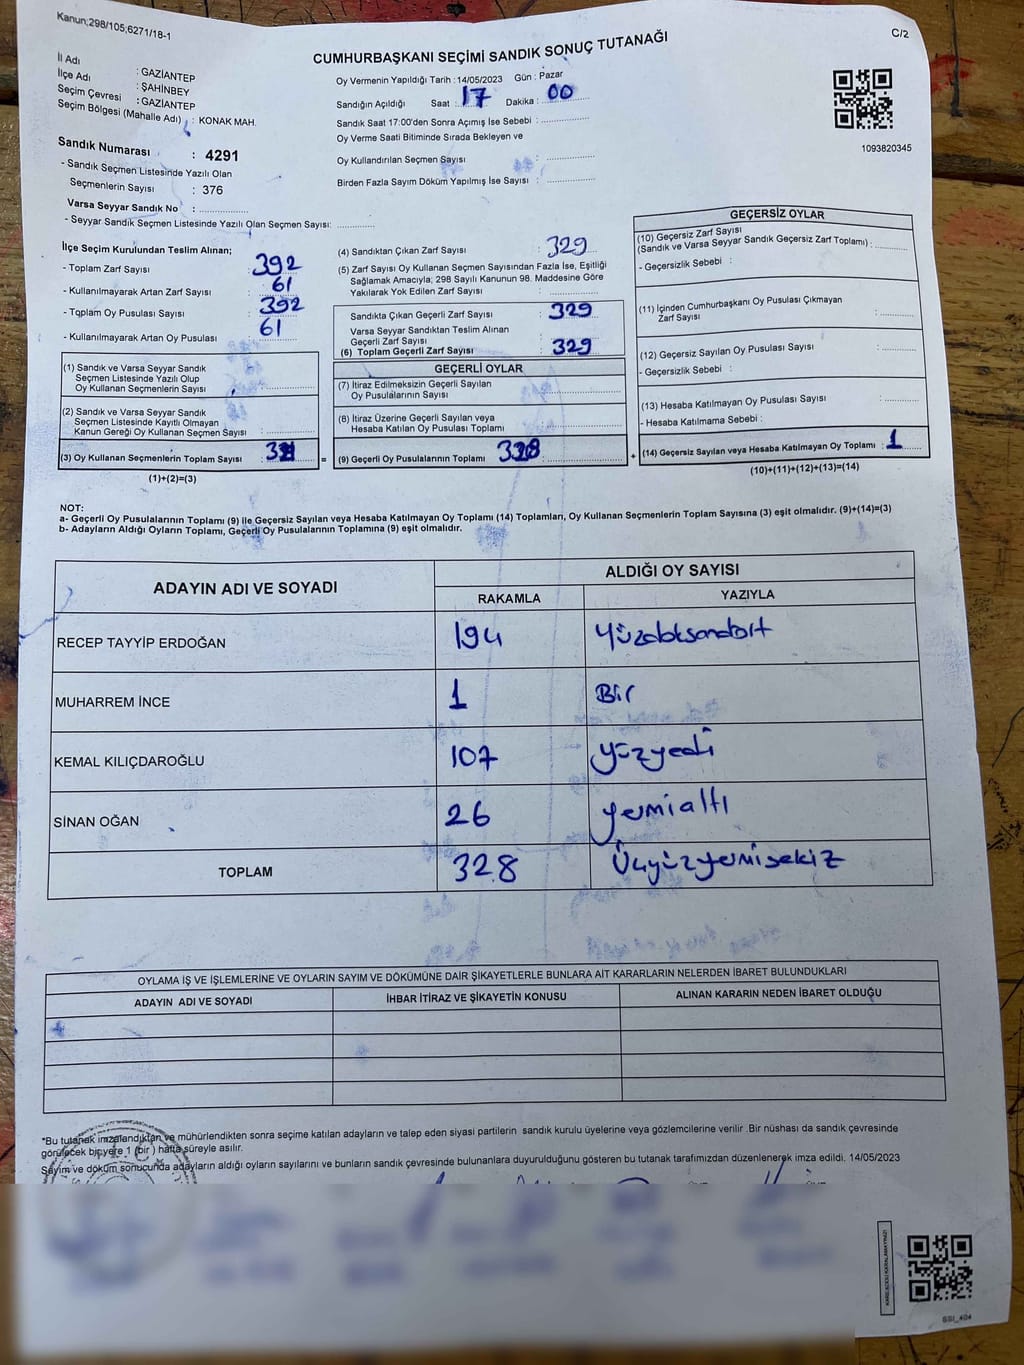 Kanun;298/105;6271/18-1
C/2
CUMHURBAŞKANI SEÇİMİ SANDIK SONUÇ TUTANAĞI
İl Adı : GAZİANTEP
İlçe Adı : ŞAHİNBEY
Seçim Çevresi : GAZİANTEP
Seçim Bölgesi (Mahalle Adı) : KONAK MAH.
Sandık Numarası : 4291
- Sandık Seçmen Listesinde Yazılı Olan
Seçmenlerin Sayısı : 376
Varsa Seyyar Sandık No :
- Seyyar Sandık Seçmen Listesinde Yazılı Olan Seçmen Sayısı:
Oy Vermenin Yapıldığı Tarih : 14/05/2023 Gün : Pazar
Sandığın Açıldığı Saat : 17 Dakika : 00
Sandık Saat 17:00'den Sonra Açımış İse Sebebi :
Oy Verme Saati Bitiminde Sırada Bekleyen ve
Oy Kullandırılan Seçmen Sayısı :
Birden Fazla Sayım Döküm Yapılmış İse Sayısı :
1093820345
İlçe Seçim Kurulundan Teslim Alınan;
- Toplam Zarf Sayısı : 392
- Kullanılmayarak Artan Zarf Sayısı : 61
- Toplam Oy Pusulası Sayısı : 392
- Kullanılmayarak Artan Oy Pusulası : 61
(1) Sandık ve Varsa Seyyar Sandık
Seçmen Listesinde Yazılı Olup
Oy Kullanan Seçmenlerin Sayısı :
(2) Sandık ve Varsa Seyyar Sandık
Seçmen Listesinde Kayıtlı Olmayan
Kanun Gereği Oy Kullanan Seçmen Sayısı :
(3) Oy Kullanan Seçmenlerin Toplam Sayısı
(1)+(2)=(3)
(4) Sandıktan Çıkan Zarf Sayısı : 329
(5) Zarf Sayısı Oy Kullanan Seçmen Sayısından Fazla İse, Eşitliği
Sağlamak Amacıyla; 298 Sayılı Kanunun 98. Maddesine Göre
Yakılarak Yok Edilen Zarf Sayısı :
Sandıkta Çıkan Geçerli Zarf Sayısı : 329
Varsa Seyyar Sandıktan Teslim Alınan
Geçerli Zarf Sayısı :
(6) Toplam Geçerli Zarf Sayısı : 329
GEÇERLİ OYLAR
(7) İtiraz Edilmeksizin Geçerli Sayılan
Oy Pusulalarının Sayısı :
(8) İtiraz Üzerine Geçerli Sayılan veya
Hesaba Katılan Oy Pusulası Toplamı :
= (9) Geçerli Oy Pusulalarının Toplamı : 328
GEÇERSİZ OYLAR
(10) Geçersiz Zarf Sayısı
(Sandık ve Varsa Seyyar Sandık Geçersiz Zarf Toplamı) :
- Geçersizlik Sebebi :
(11) İçinden Cumhurbaşkanı Oy Pusulası Çıkmayan
Zarf Sayısı :
(12) Geçersiz Sayılan Oy Pusulası Sayısı :
- Geçersizlik Sebebi :
(13) Hesaba Katılmayan Oy Pusulası Sayısı :
- Hesaba Katılmama Sebebi :
+ (14) Geçersiz Sayılan veya Hesaba Katılmayan Oy Toplamı : 1
(10)+(11)+(12)+(13)=(14)
NOT:
a- Geçerli Oy Pusulalarının Toplamı (9) ile Geçersiz Sayılan veya Hesaba Katılmayan Oy Toplamı (14) Toplamları, Oy Kullanan Seçmenlerin Toplam Sayısına (3) eşit olmalıdır. (9)+(14)=(3)
b- Adayların Aldığı Oyların Toplamı, Geçerli Oy Pusulalarının Toplamına (9) eşit olmalıdır.
ADAYIN ADI VE SOYADI
ALDIĞI OY SAYISI
RAKAMLA YAZIYLA
RECEP TAYYİP ERDOĞAN 194
MUHARREM İNCE 1 Bir
KEMAL KILIÇDAROĞLU 107 yüzyedi
SİNAN OĞAN 26 yermialtı
TOPLAM 328 Üçyüzyermisekiz
OYLAMA İŞ VE İŞLEMLERİNE VE OYLARIN SAYIM VE DÖKÜMÜNE DAİR ŞİKAYETLERLE BUNLARA AİT KARARLARIN NELERDEN İBARET BULUNDUKLARI
ADAYIN ADI VE SOYADI İHBAR İTİRAZ VE ŞİKAYETİN KONUSU ALINAN KARARIN NEDEN İBARET OLDUĞU
*Bu tutanak imzalandıktan ve mühürlendikten sonra seçime katılan adayların ve talep eden siyasi partilerin sandık kurulu üyelerine veya gözlemcilerine verilir .Bir nüshası da sandık çevresinde
görülecek bir yere 1 (bir ) hafta süreyle asılır.
Sayım ve döküm sonucunda adayların aldığı oyların sayılarını ve bunların sandık çevresinde bulunanlara duyurulduğunu gösteren bu tutanak tarafımızdan düzenlenerek imza edildi. 14/05/2023
SSI_404